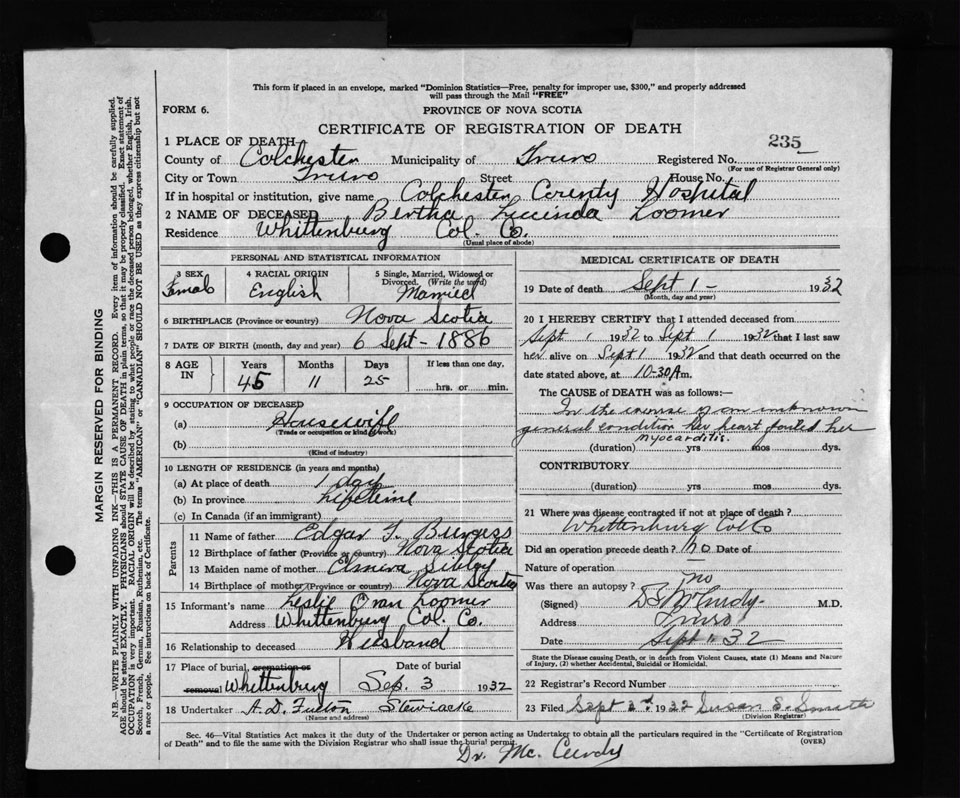 This form if placed in an envelope, marked "Dominion Statistics—Free, penalty for improper use, $300," and properly addressed
will pass through the Mail "FREE"
FORM 6.
PROVINCE OF NOVA SCOTIA
CERTIFICATE OF REGISTRATION OF DEATH
235
1 PLACE OF DEATH
County of Colchester Municipality of Truro Registered No.
(For use of Registrar General only)
City or Town Truro Street House No.
If in hospital or institution, give name Colchester County Hospital
2 NAME OF DECEASED Bertha Lucinda Loomer
Residence Whittenburg Col. Co.
(Usual place of abode)
PERSONAL AND STATISTICAL INFORMATION
3 SEX Female
4 RACIAL ORIGIN English
5 Single, Married, Widowed or
Divorced. (Write the word)
Married
6 BIRTHPLACE (Province or country) Nova Scotia
7 DATE OF BIRTH (month, day and year) 6 Sept - 1886
8 AGE IN Years Months Days If less than one day,
45 11 25 hrs. or min.
9 OCCUPATION OF DECEASED
(a) Housewife
(Trade or occupation or kind of work)
(b)
(Kind of industry)
10 LENGTH OF RESIDENCE (in years and months)
(a) At place of death 1 day
(b) In province Lifetime
(c) In Canada (if an immigrant)
Parents
11 Name of father Edgar Burgess
12 Birthplace of father (Province or country) Nova Scotia
13 Maiden name of mother Elmira Sibley
14 Birthplace of mother (Province or country) Nova Scotia
15 Informant's name Leslie Oran Loomer
Address Whittenburg Col. Co.
16 Relationship to deceased Husband
17 Place of burial, cremation or Date of burial
removal Whittenburg Sep. 3 1932
18 Undertaker A. D. Fulton Stewiacke
(Name and address)
MEDICAL CERTIFICATE OF DEATH
19 Date of death Sept 1 - 1932
(Month, day and year)
20 I HEREBY CERTIFY that I attended deceased from
Sept 1 1932 to Sept 1 1932 that I last saw
her alive on Sept 1 1932 and that death occurred on the
date stated above, at 10-30 A m.
The CAUSE OF DEATH was as follows:
In the course of an unknown
general condition her heart failed her
myocarditis.
(duration) yrs mos dys.
CONTRIBUTORY
(duration) yrs mos dys.
21 Where was disease contracted if not at place of death?
Whittenburg Col Co
Did an operation precede death? no Date of
Nature of operation
Was there an autopsy? no
(Signed) McCurdy M.D.
Address Truro
Date Sept 1 32
State the Disease causing Death, or in death from Violent Causes, state (1) Means and Nature
of Injury, (2) whether Accidental, Suicidal or Homicidal.
22 Registrar's Record Number
23 Filed Sept 1932 Susan S. Smith
(Division Registrar)
Sec. 46—Vital Statistics Act makes it the duty of the Undertaker or person acting as Undertaker to obtain all the particulars required in the "Certificate of Registration
of Death" and to file the same with the Division Registrar who shall issue the burial permit.
(OVER)
Dr. Mc. Curdy
MARGIN RESERVED FOR BINDING
N.B.—WRITE PLAINLY WITH UNFADING INK—THIS IS A PERMANENT RECORD. Every item of information should be carefully supplied.
AGE should be stated EXACTLY. PHYSICIANS should STATE CAUSE OF DEATH in plain terms, so that it may be properly classified. Exact statement of
OCCUPATION is very important. RACIAL ORIGIN will be described by stating to what people or race the deceased person belonged, whether English, Irish,
Scotch, French, German, Russian, Ruthenian, etc. The terms "AMERICAN" or "CANADIAN" SHOULD NOT BE USED as they express citizenship but not
a race or people. See instructions on back of Certificate.